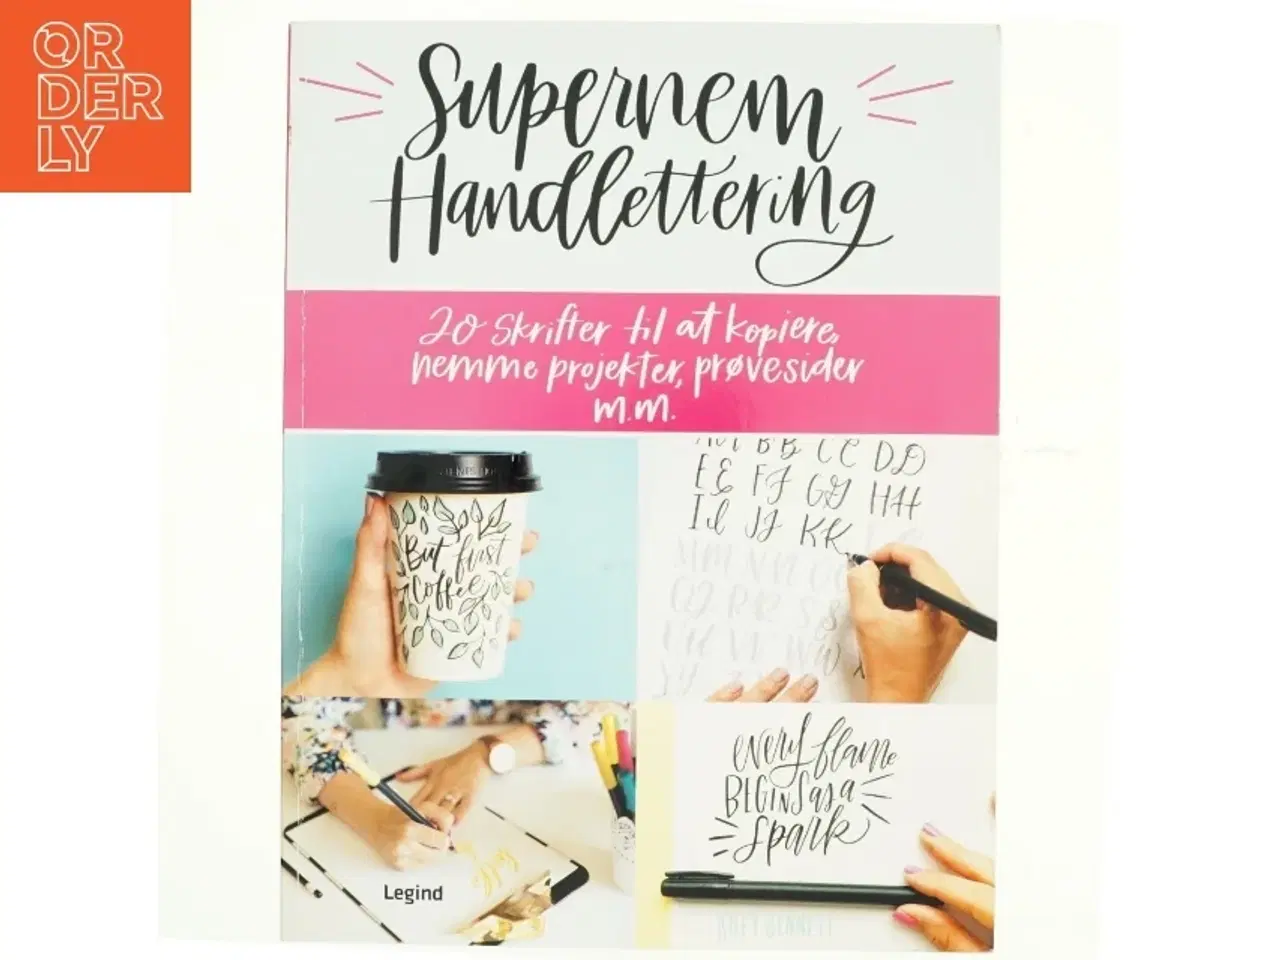 OR
DER
LY
Supernem
Handlettering
20 skrifter til at kopiere,
nemme projekter, prøvesider
m.m.
But first
coffee
BB CC DD
EE FF GG HH
II JJ KK
every flame
BEGINS as a
spark
Legind